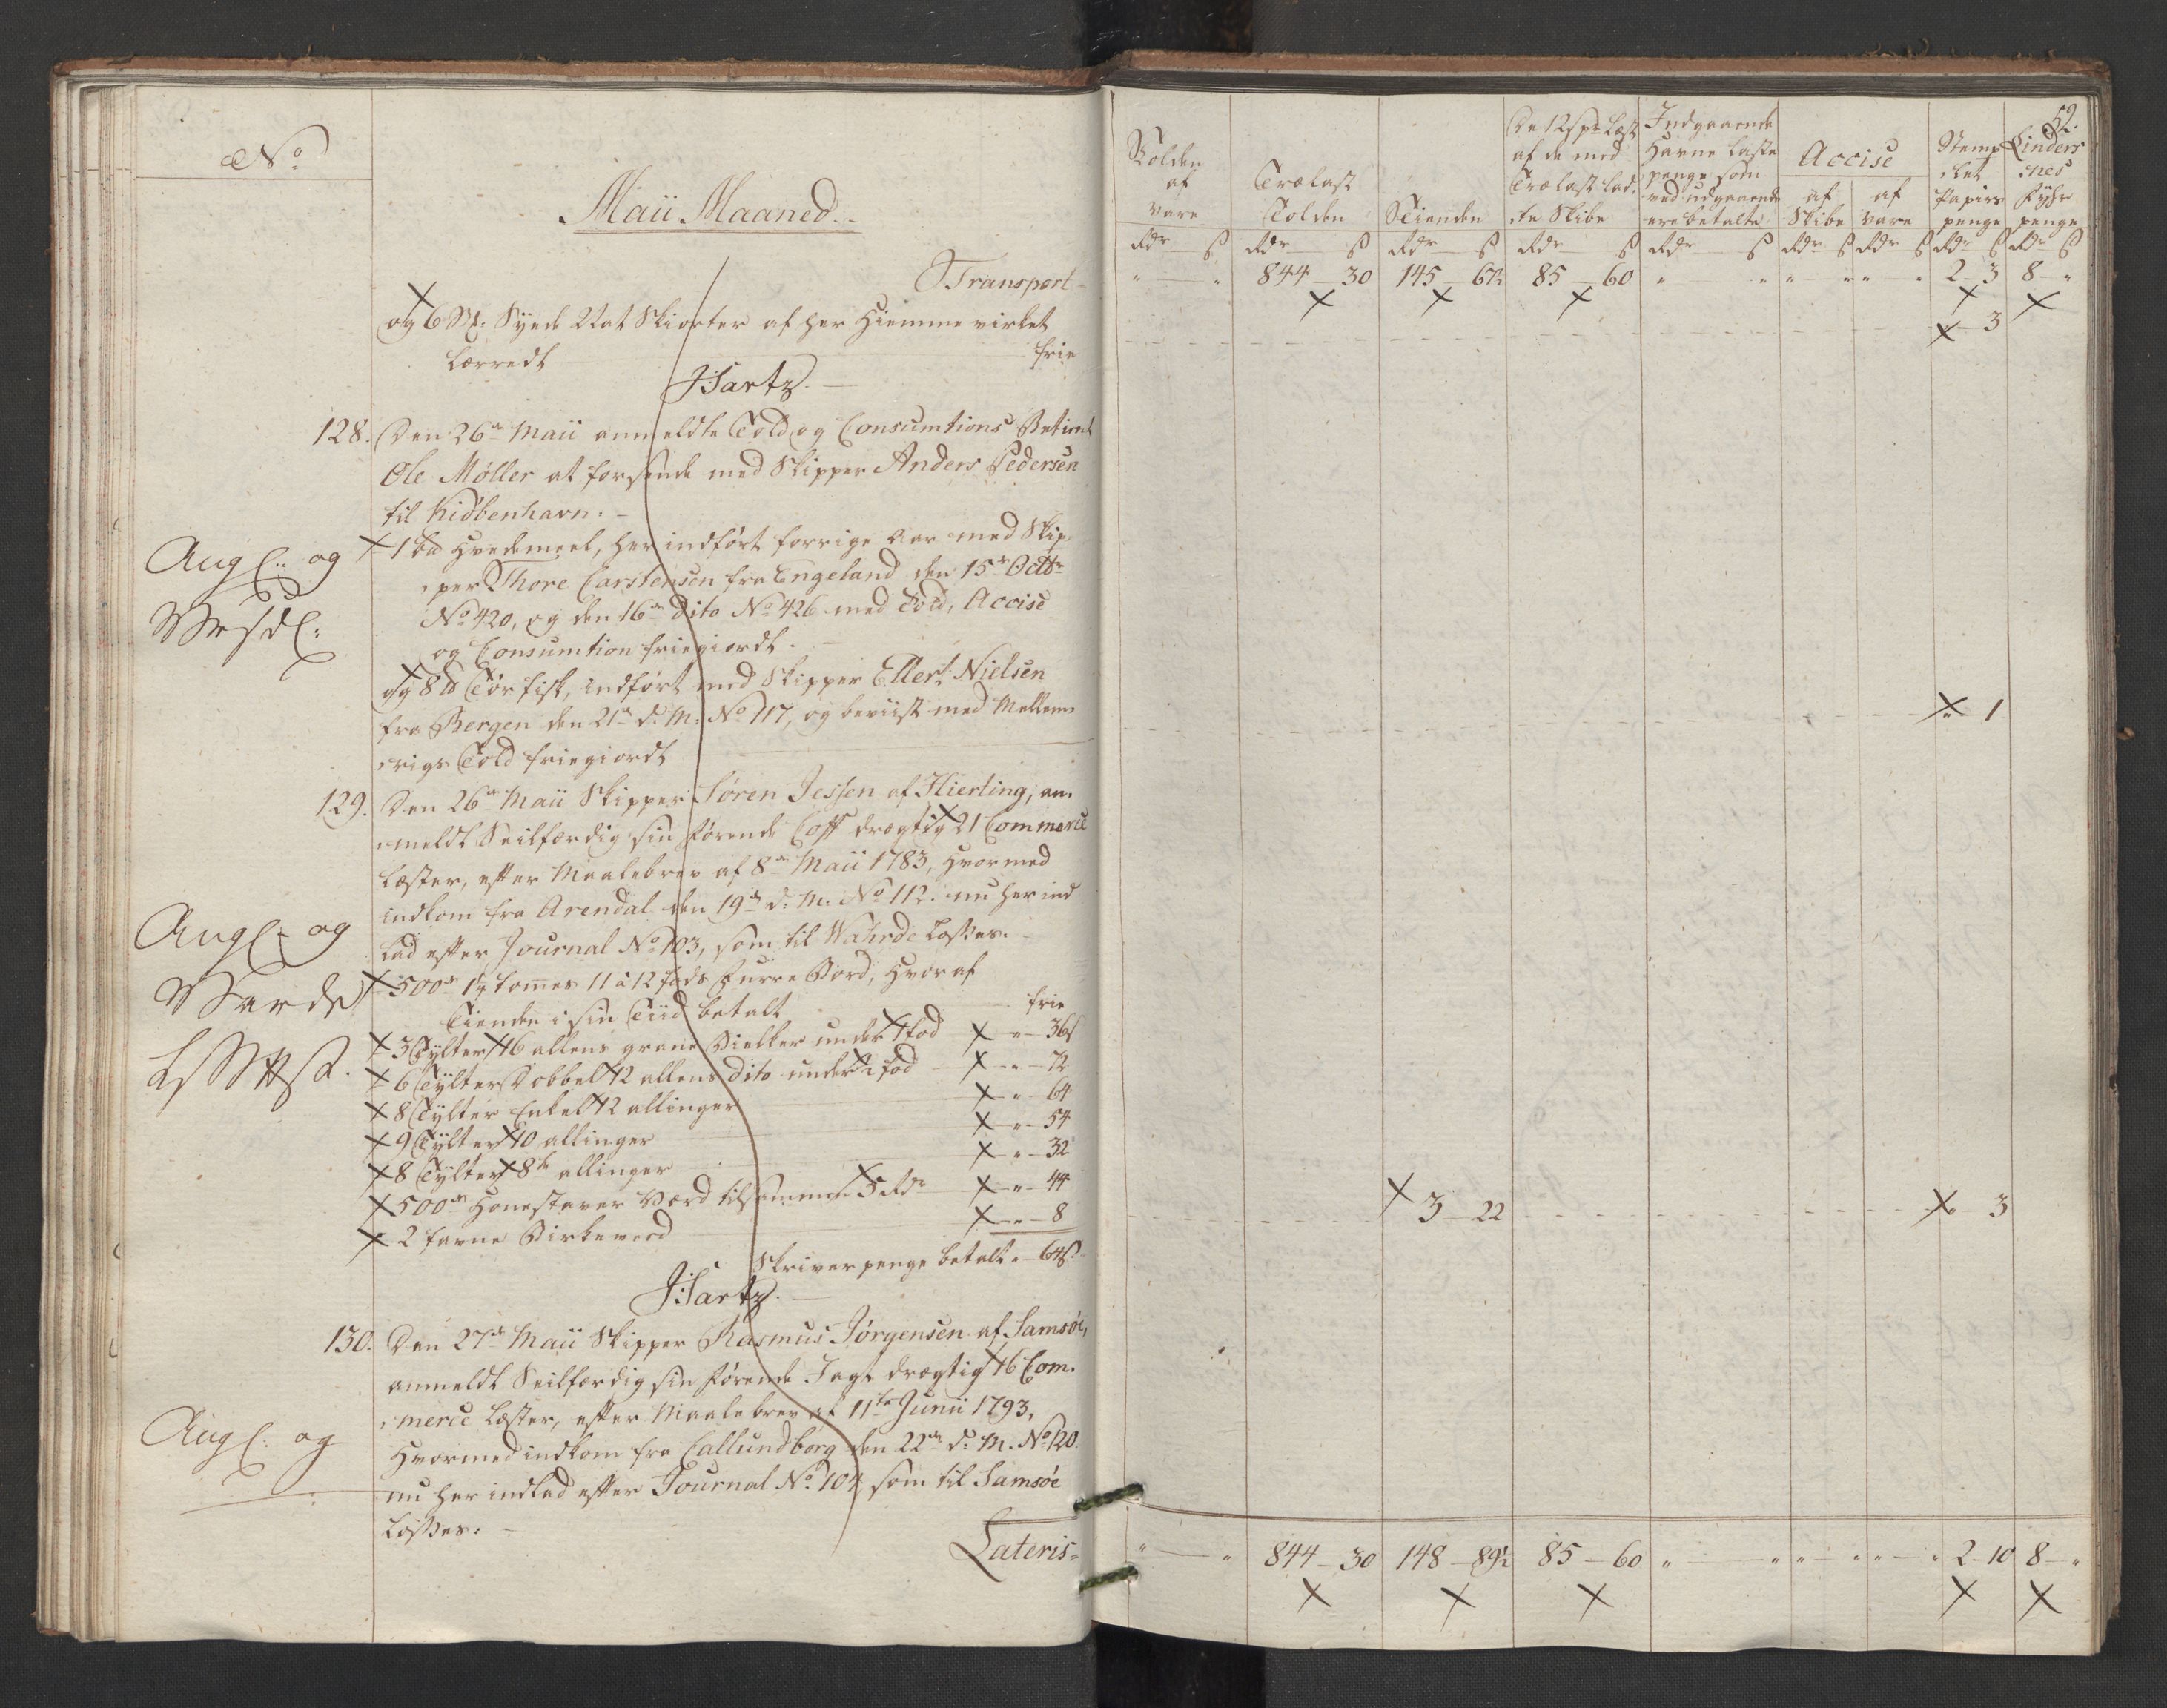 No
Maii Maaned.
Transport
og 6 St: Syede Nat Skiorter af her Hiemme virket
Lærredt frie
Hartz.
128. Den 26de Maii anmeldte Told og Consumtions Betient
Ole Møller at forsende med Skipper Anders Pedersen
til Kiøbenhavn.
1 td Hvedemeel, her indført forrige Aar med Skip-
per Thore Carstensen fra Engeland den 15de Octbr
No 420, og den 16de Dito No 426 med Told, Accise
og Consumtion friegiordt.
og 8 td Tør fisk, indført med Skipper Ellert Nielsen
fra Bergen den 21de d: M: No 117, og beviist med Mellem-
rigs Told friegiordt
Angl: og
129. Den 26de Maii Skipper Søren Jessen af Hierting, an-
meldt Seilfærdig sin førende Coff drægtig 21 Commerce
Læster, efter Maalebrev af 8de Maii 1783, Hvormed
indkom fra Arendal den 19de d: M: No 112. nu her ind
lad efter Journal No 103, som til Wahrde Losses.
500de 1¼ tommes 11 à 12 fods Furre Bord, Hvoraf
Tienden i sin Tiid betalt frie
3 Tylter 16 allens grane Bielker under 1 fod " 36 s
6 Tylter Dobbelt 12 allens dito under ½ fod " 72
8 Tylter Enkelt 12 allinger " 64
9 Tylter 10 allinger " 54
8 Tylter 8te allinger " 32
500de Honestaver Værd tilsammen 5 Rdr " 44
2 favne Birkeveed " 8
Skriverpenge betalt " 64 s
Hartz.
Angl: og
Warde
130. Den 27de Maii Skipper Rasmus Jørgensen af Samsøe,
anmeldt Seilfærdig sin førende Jagt drægtig 16 Com-
merce Læster, efter Maalebrev af 11te Junii 1793,
Hvormed indkom fra Callundborg den 22de d: M. No 120.
nu her indlad efter Journal No 104 som til Samsøe
Losses.
Angl: og
Lateris
52.
Tolden af Vare
Trælast Tolden
Tienden
De 12 s pr Læst af de med Trælast lad-te Skibe
Indgaaende Havne Laste penge som ved udgaaende ere betalte
Accise
af Skibe
af Vare
Stemp-let Papiirs penge
Linders-nes Fyhr penge
Rdr s Rdr s Rdr s Rdr s Rdr s Rdr s Rdr s Rdr s Rdr s
" " 844 30 145 67½ 85 60 " " " " " " 2 3 8 "
" 3
" 1
3 22 " 3
" " 844 30 148 89½ 85 60 " " " " " " 2 10 8 "